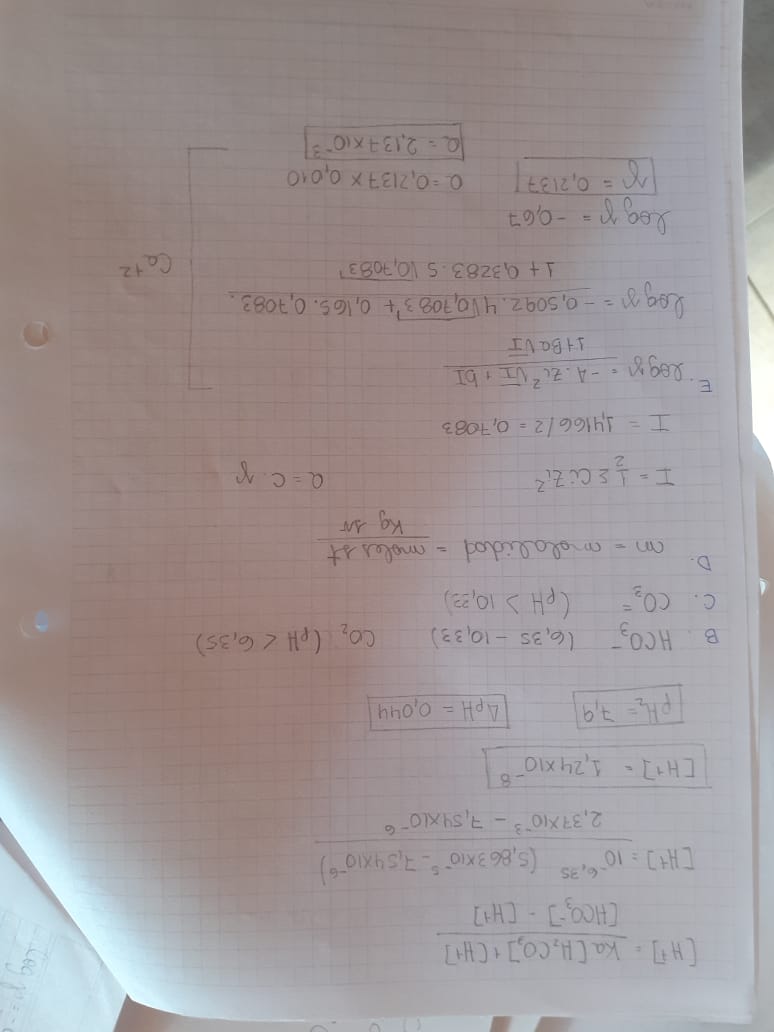 [H+] = Ka [H2CO3] + [H+]
[HCO3-] - [H+]
[H+] = 10^-6,35 (5,863x10^-5 - 7,54x10^-6)
2,37x10^-3 - 7,54x10^-6
[H+] = 1,24x10^-8
pH2 = 7,9 ΔpH = 0,044
B. HCO3- (6,35 - 10,33) CO2 (pH < 6,35)
C. CO3= (pH > 10,33)
D.
m = molalidad = moles st
Kg sv
I = 1/2 Σ Ci Zi² a = c . γ
I = 1,4166/2 = 0,7083
E. log γ = -A . Zi² √I + bI
1 + Ba √I
log γ = -0,5092 . 4 √0,7083 + 0,165 . 0,7083.
1 + 0,3283 . 5 √0,7083
Ca+2
log γ = -0,67
γ = 0,2137 a = 0,2137 x 0,010
a = 2,137x10^-3